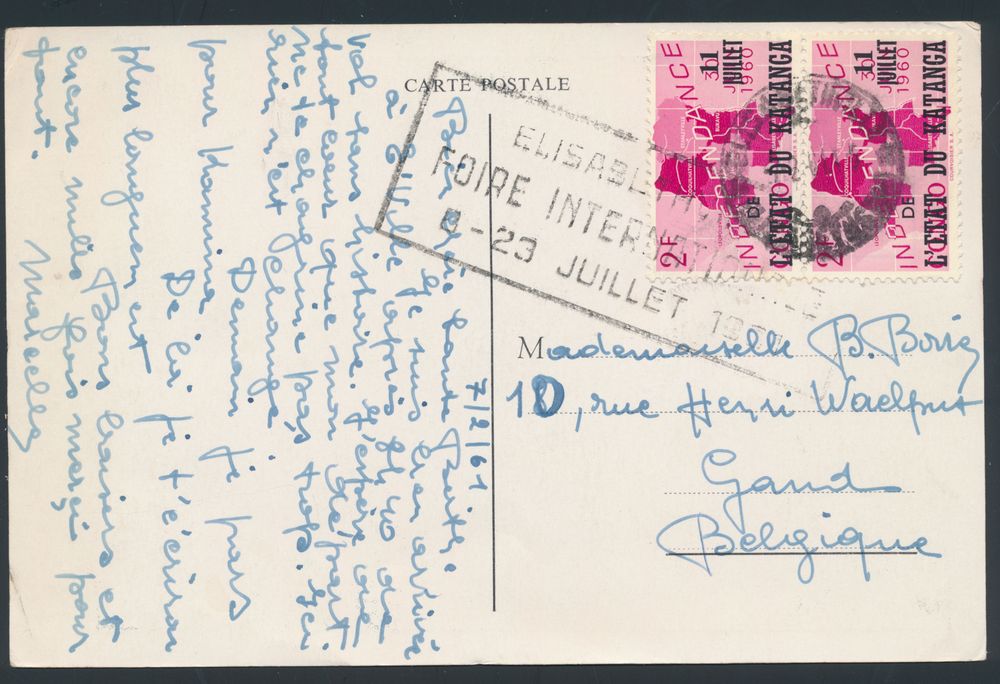 CARTE POSTALE
7/2/61
Bien chère tante Berthe
Je suis bien arrivée
à E/Ville après 9h40 de
vol sans histoire. J'espère que
tout cœur que mon départ
ne te chagrine pas trop. Ici
rien n'est changé.
Demain je pars
pour Kamina.
De là, je t'écrirai
plus longuement
Bons baisers et
encore mille fois merci pour
tout.
Marcelle
ELISABETHVILLE
FOIRE INTERNATIONALE
8-23 JUILLET 1961
INDEPENDANCE
DE
CONGO
2F
30
11
JUILLET
1960
L'ETAT DU KATANGA
INDEPENDANCE
DE
CONGO
2F
30
11
JUILLET
1960
L'ETAT DU KATANGA
Mademoiselle B.
10, rue Henri
Gand
Belgique